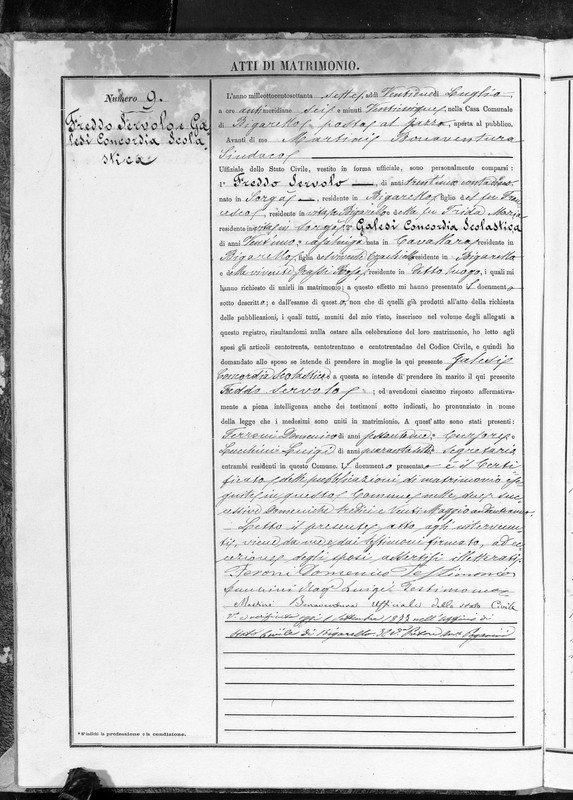 ATTI DI MATRIMONIO.
Numero 9.
Freddo Servolo e Ga-
lesi Concordia Scola-
stica
L'anno millottocentosettanta sette, addì Ventidue di Luglio
a ore antimeridiane Sei e minuti Venticinque, nella Casa Comunale
di Bigarello posta al Gazzo, aperta al pubblico.
Avanti di me Martini Bonaventura
Sindaco
Uffiziale dello Stato Civile, vestito in forma uffiziale, sono personalmente comparsi:
1° Freddo Servolo, di anni trentuno contadino,
nato in Sorgà, residente in Bigarello, figlio del fu Fran-
cesco, residente in vita in Bigarello e della fu Frida Maria
residente in vita in Sorgà; 2° Galesi Concordia Scolastica
di anni Ventuno casalinga nata in Cavallara, residente in
Bigarello, figlia del vivente residente in Bigarello
e della vivente residente in detto luogo, i quali mi
hanno richiesto di unirli in matrimonio; a questo effetto mi hanno presentato il documento
sotto descritto; e dall'esame di questo, non che di quelli già prodotti all'atto della richiesta
delle pubblicazioni, i quali tutti, muniti del mio visto, inserisco nel volume degli allegati a
questo registro, risultandomi nulla ostare alla celebrazione del loro matrimonio, ho letto agli
sposi gli articoli centotrenta, centotrentuno e centotrentadue del Codice Civile, e quindi ho
domandato allo sposo se intende di prendere in moglie la qui presente Galesi
Concordia Scolastica e a questa se intende di prendere in marito il qui presente
Freddo Servolo; ed avendomi ciascuno risposto affermativa-
mente a piena intelligenza anche dei testimoni sotto indicati, ho pronunziato in nome
della legge che i medesimi sono uniti in matrimonio. A quest'atto sono stati presenti:
Ferroni Domenico di anni sessantadue Cursore e
Lucchini Luigi di anni quarantatre Segretario
entrambi residenti in questo Comune. Il documento presentato è il Certi-
ficato delle pubblicazioni di matrimonio ese-
guite in questo Comune nelle due suc-
cessive Domeniche tredici e Venti Maggio andante anno
Letto il presente atto agli intervenu-
ti, viene da me e dai testimoni firmato, ad ec-
cezione degli sposi assertisi illetterati.
Feroni Domenico Testimonio
Lucchini Luigi Testimonio
Martini Bonaventura uffiziale dello stato Civile
V° e verificato oggi Settembre nell'uffizio di
stato Civile di Bigarello
*S'indichi la professione o la condizione.